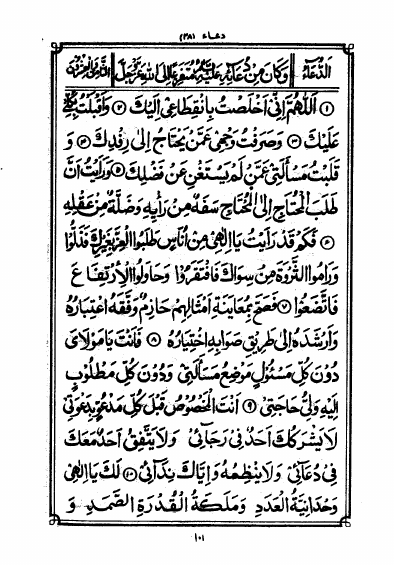 دعاء (٢٨)
الدُّعَاءُ وَكَانَ مِنْ دُعَائِهِ عَلَيْهِ مُتَفَزِّعًا إِلَى اللهِ عَزَّ وَجَلَّ الثَّامِنُ وَالْعِشْرُونَ
١ اَللّٰهُمَّ اِنِّىْ اَخْلَصْتُ بِانْقِطَاعِىْ اِلَيْكَ ٢ وَاَقْبَلْتُ بِكُلِّىْ
عَلَيْكَ ٣ وَصَرَفْتُ وَجْهِىْ عَمَّنْ يَحْتَاجُ اِلٰى رِفْدِكَ ٤ وَ
قَلَبْتُ مَسْأَلَتِىْ عَمَّنْ لَمْ يَسْتَغْنِ عَنْ فَضْلِكَ ٥ وَرَاَيْتُ اَنَّ
طَلَبَ الْمُحْتَاجِ اِلَى الْمُحْتَاجِ سَفَهٌ مِنْ رَاْيِهِ وَضَلَّةٌ مِنْ عَقْلِهِ
٦ فَكَمْ قَدْ رَاَيْتُ يَا اِلٰهِىْ مِنْ اُنَاسٍ طَلَبُوا الْعِزَّ بِغَيْرِكَ فَذَلُّوْا
وَرَامُوا الثَّرْوَةَ مِنْ سِوَاكَ فَافْتَقَرُوْا وَحَاوَلُوا الْاِرْتِفَاعَ
فَاتَّضَعُوْا ٧ فَصَحَّ بِمُعَايَنَةِ اَمْثَالِهِمْ حَازِمٌ وَفَّقَهُ اعْتِبَارُهُ
وَاَرْشَدَهُ اِلٰى طَرِيْقِ صَوَابِهِ اخْتِيَارُهُ ٨ فَاَنْتَ يَا مَوْلَاىَ
دُوْنَ كُلِّ مَسْئُوْلٍ مَوْضِعُ مَسْأَلَتِىْ وَدُوْنَ كُلِّ مَطْلُوْبٍ
اِلَيْهِ وَلِىُّ حَاجَتِىْ ٩ اَنْتَ الْمَخْصُوْصُ قَبْلَ كُلِّ مَدْعُوٍّ بِدَعْوَتِىْ
لَا يَشْرَكُكَ اَحَدٌ فِىْ رَجَائِىْ وَلَا يَتَّفِقُ اَحَدٌ مَعَكَ
فِىْ دُعَائِىْ وَلَا يَنْظِمُهُ وَاِيَّاكَ نِدَآئِىْ ١٠ لَكَ يَا اِلٰهِىْ
وَحْدَانِيَّةُ الْعَدَدِ وَمَلَكَةُ الْقُدْرَةِ الصَّمَدِ وَ
١٠١